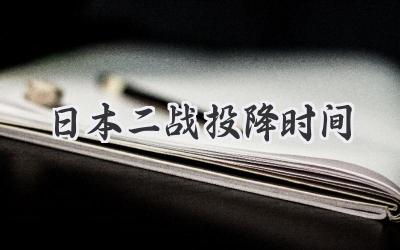 日本二战投降时间